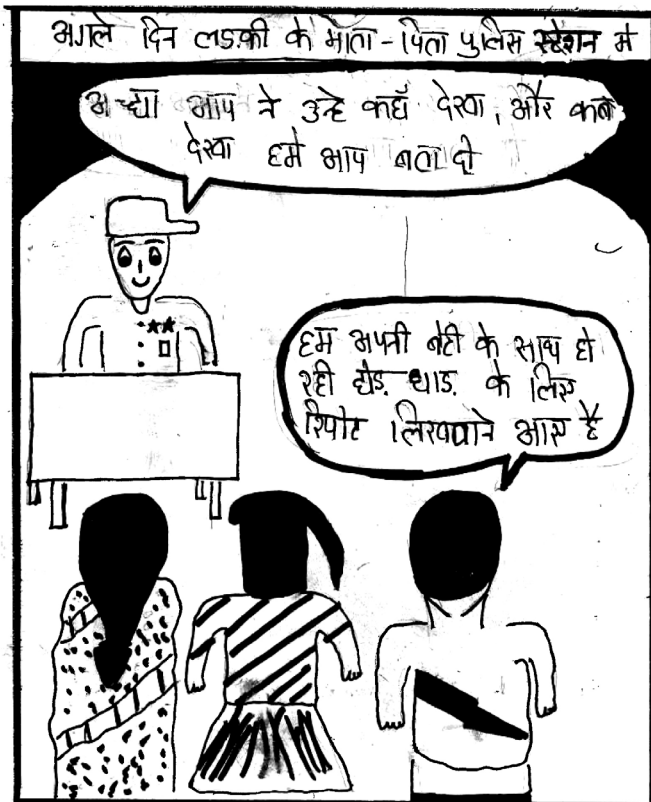 अगले दिन लड़की के माता-पिता पुलिस स्टेशन मे
अच्छा आप ने उन्हे कहाँ देखा, और कब
देखा हमे आप बता दो
हम अपनी बेटी के साथ हो
रही छेड़ छाड़ के लिए
रिपोट लिखवाने आए है